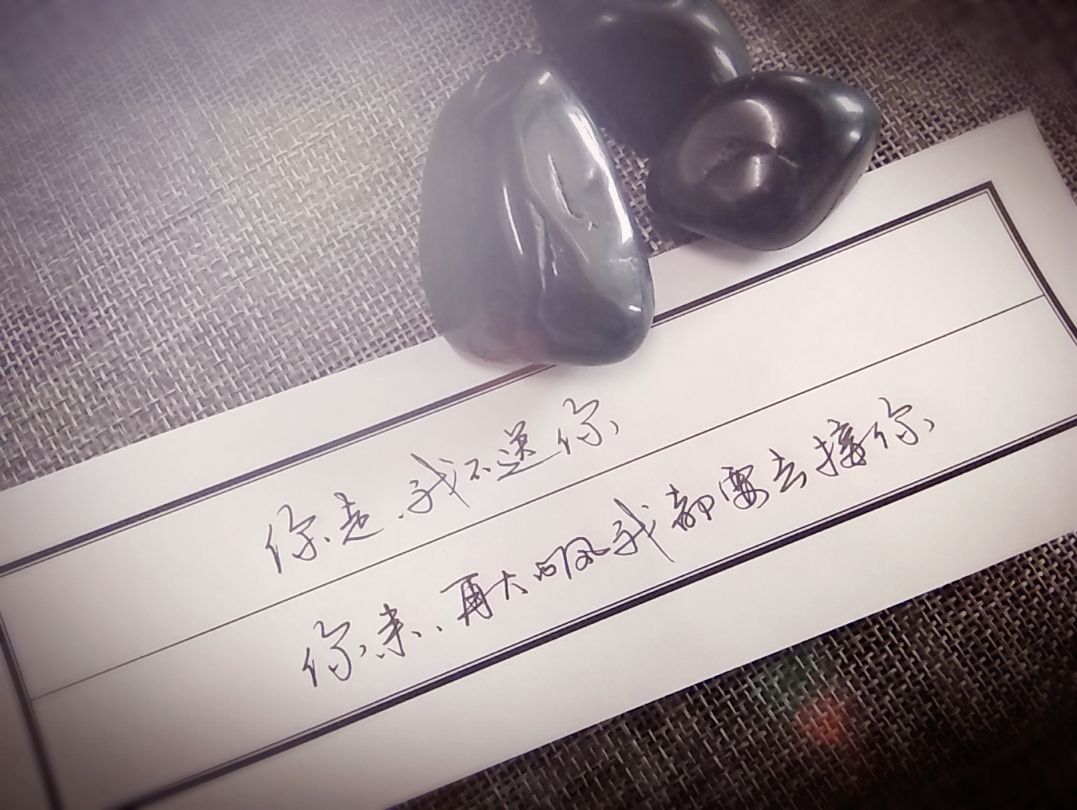 你走,我不送你
你来,再大的风我都要去接你